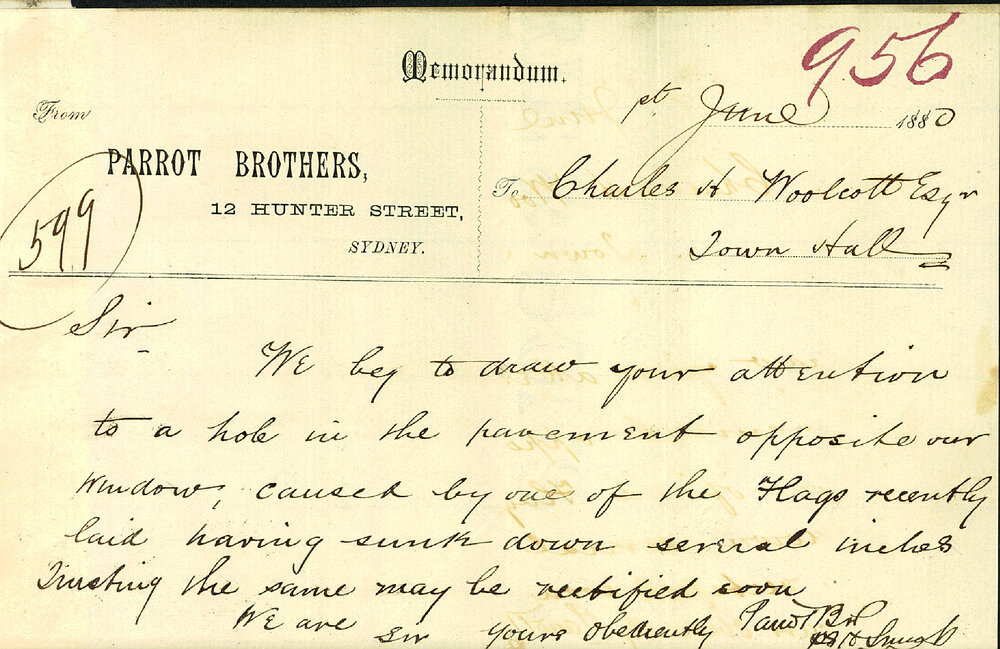 956
Memorandum.
1st June 1880
From
PARROT BROTHERS,
12 HUNTER STREET,
SYDNEY.
599
To Charles H Woolcott Esqr
Town Hall
Sir
We beg to draw your attention
to a hole in the pavement opposite our
window, caused by one of the Flags recently
laid having sunk down several inches
Trusting the same may be rectified soon
We are Sir yours obediently Parrot Bros